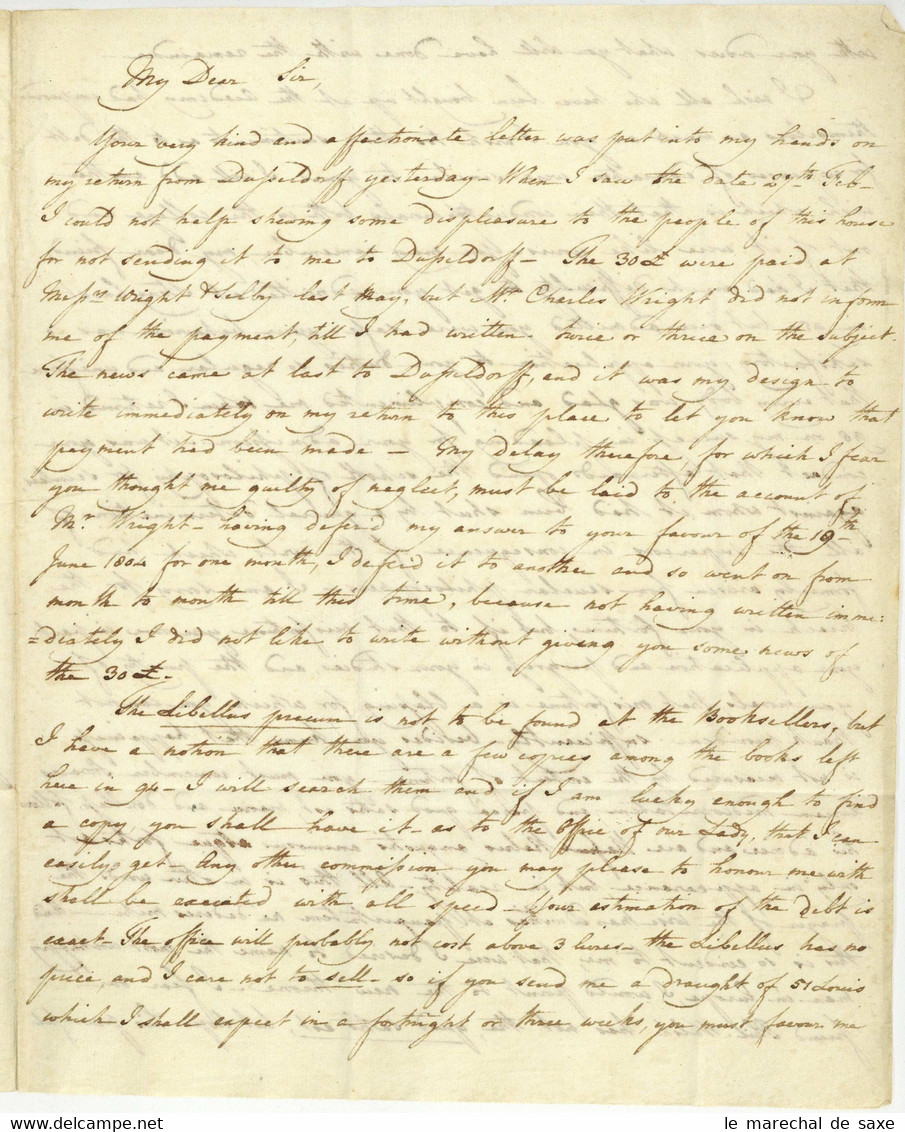 My Dear Sir,
Your very kind and affectionate letter was put into my hands on
my return from Dusseldorff yesterday – When I saw the date 27th Feb–
I could not help shewing some displeasure to the people of this house
for not sending it to me to Dusseldorff – The 30£ were paid at
Messrs Wright & Selby last May, but Mr Charles Wright did not inform
me of the payment, till I had written twice or thrice on the subject.
The news came at last to Dusseldorff, and it was my design to
write immediately on my return to this place to let you know that
payment had been made – My delay therefore, for which I fear
you thought me guilty of neglect, must be laid to the account of
Mr Wright – having defer'd my answer to your favour of the 19th
June 1804 for one month, I defer'd it to another and so went on from
month to month till this time, because not having written imme:
=diately I did not like to write without giving you some news of
the 30£–
The Libellus precum is not to be found at the Booksellers, but
I have a notion that there are a few copies among the books left
here in 94 – I will search them and if I am lucky enough to find
a copy you shall have it – as to the Office of our Lady, that I can
easily get – Any other commission you may please to honour me with
shall be executed with all speed – Your estimation of the debt is
exact – The office will probably not cost above 3 livres – the Libellus has no
price, and I care not to sell – so if you send me a draught of 51 Louis
which I shall expect in a fortnight or three weeks, you must favour me
le marechal de saxe